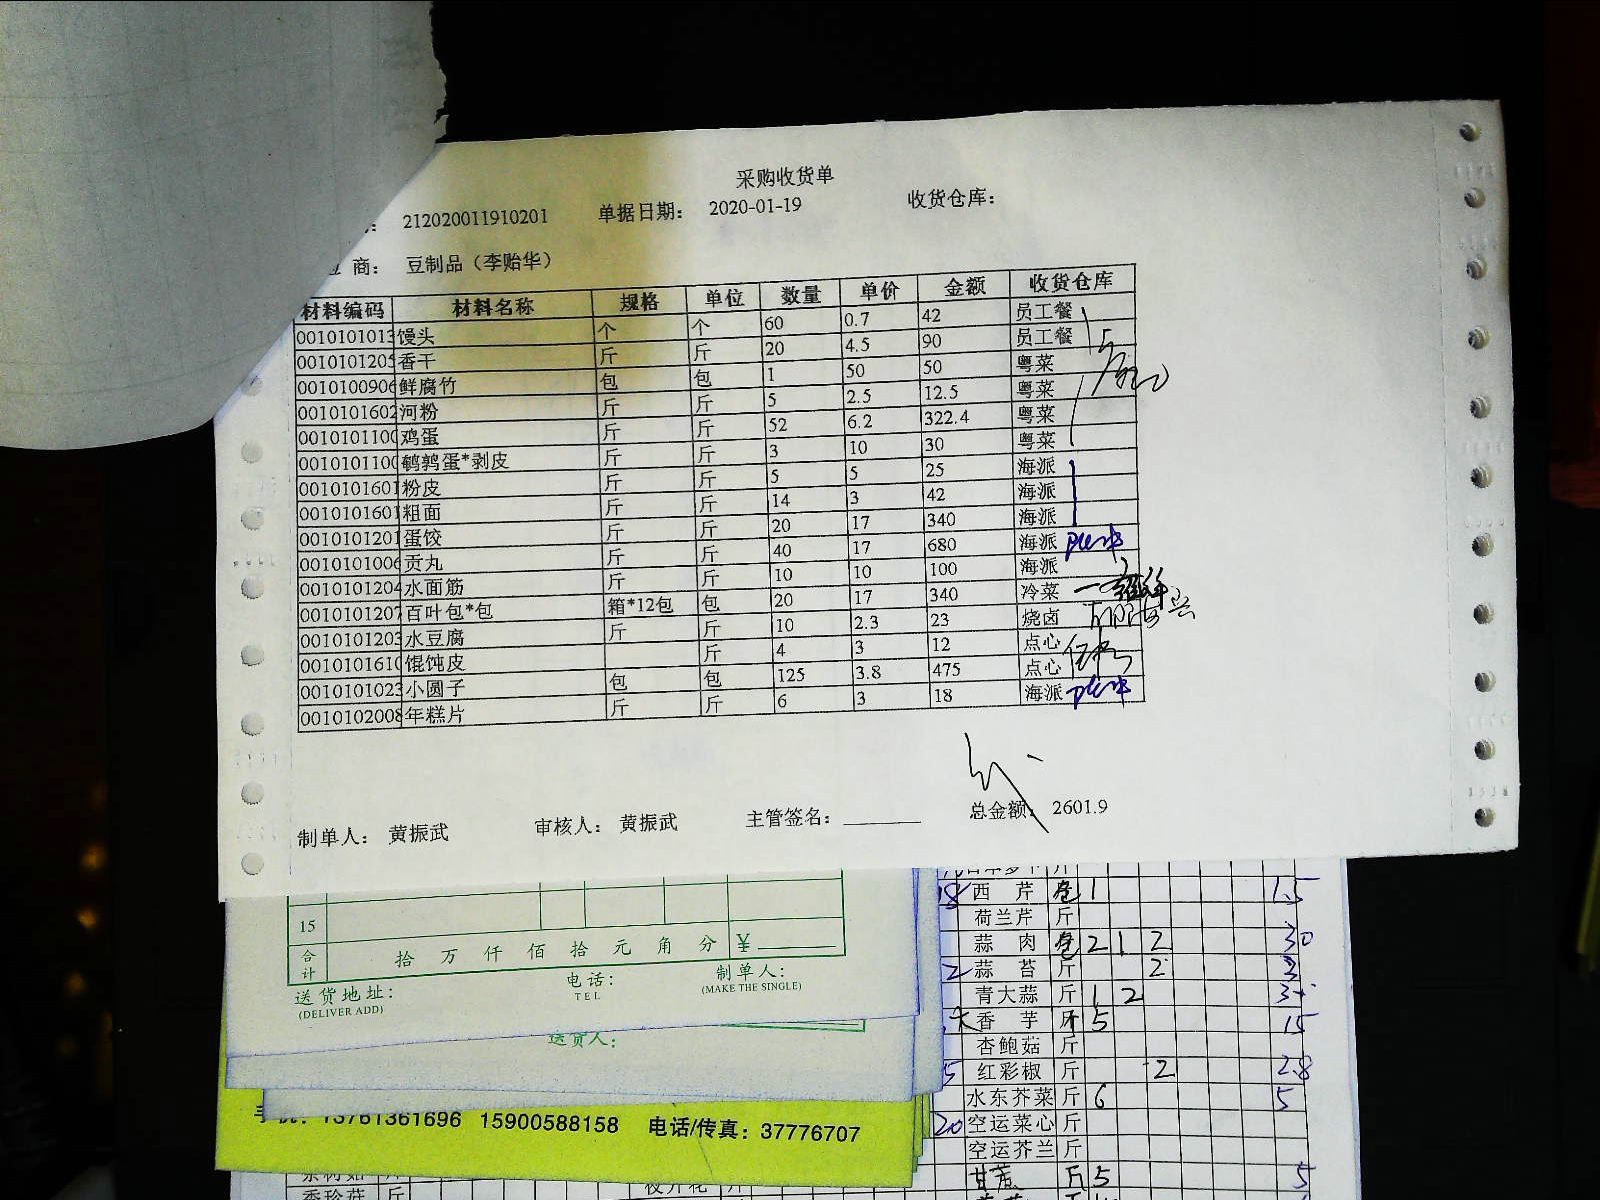 采购收货单
212020011910201 单据日期： 2020-01-19 收货仓库：
商： 豆制品（李贻华）
材料编码 材料名称 规格 单位 数量 单价 金额 收货仓库
0010101013 馒头 个 个 60 0.7 42 员工餐
0010101205 香干 斤 斤 20 4.5 90 员工餐
0010100906 鲜腐竹 包 包 1 50 50 粤菜
0010101602 河粉 斤 斤 5 2.5 12.5 粤菜
0010101100 鸡蛋 斤 斤 52 6.2 322.4 粤菜
0010101100 鹌鹑蛋*剥皮 斤 斤 3 10 30 粤菜
0010101601 粉皮 斤 斤 5 5 25 海派
0010101601 粗面 斤 斤 14 3 42 海派
0010101201 蛋饺 斤 斤 20 17 340 海派
0010101006 贡丸 斤 斤 40 17 680 海派
0010101204 水面筋 斤 斤 10 10 100 海派
0010101207 百叶包*包 箱*12包 包 20 17 340 冷菜
0010101203 水豆腐 斤 斤 10 2.3 23 烧卤
0010101610 馄饨皮 斤 4 3 12 点心
0010101023 小圆子 包 包 125 3.8 475 点心
0010102008 年糕片 斤 斤 6 3 18 海派
制单人： 黄振武 审核人： 黄振武 主管签名： 总金额： 2601.9
15
合计 拾 万 仟 佰 拾 元 角 分 ¥
送货地址： 电话： 制单人：
(DELIVER ADD) TEL (MAKE THE SINGLE)
送货人：
手机： 13761361696 15900588158 电话/传真：37776707
西芹 1 1.5
荷兰芹 斤
蒜肉 2 1 2 30
2 蒜苔 斤 2 3
青大蒜 斤 1 2
香芋 5 15
杏鲍菇 斤
5 红彩椒 斤 2 2.8
水东芥菜 斤 6 5
20 空运菜心 斤
空运芥兰 斤
甘蔗 斤 5 5